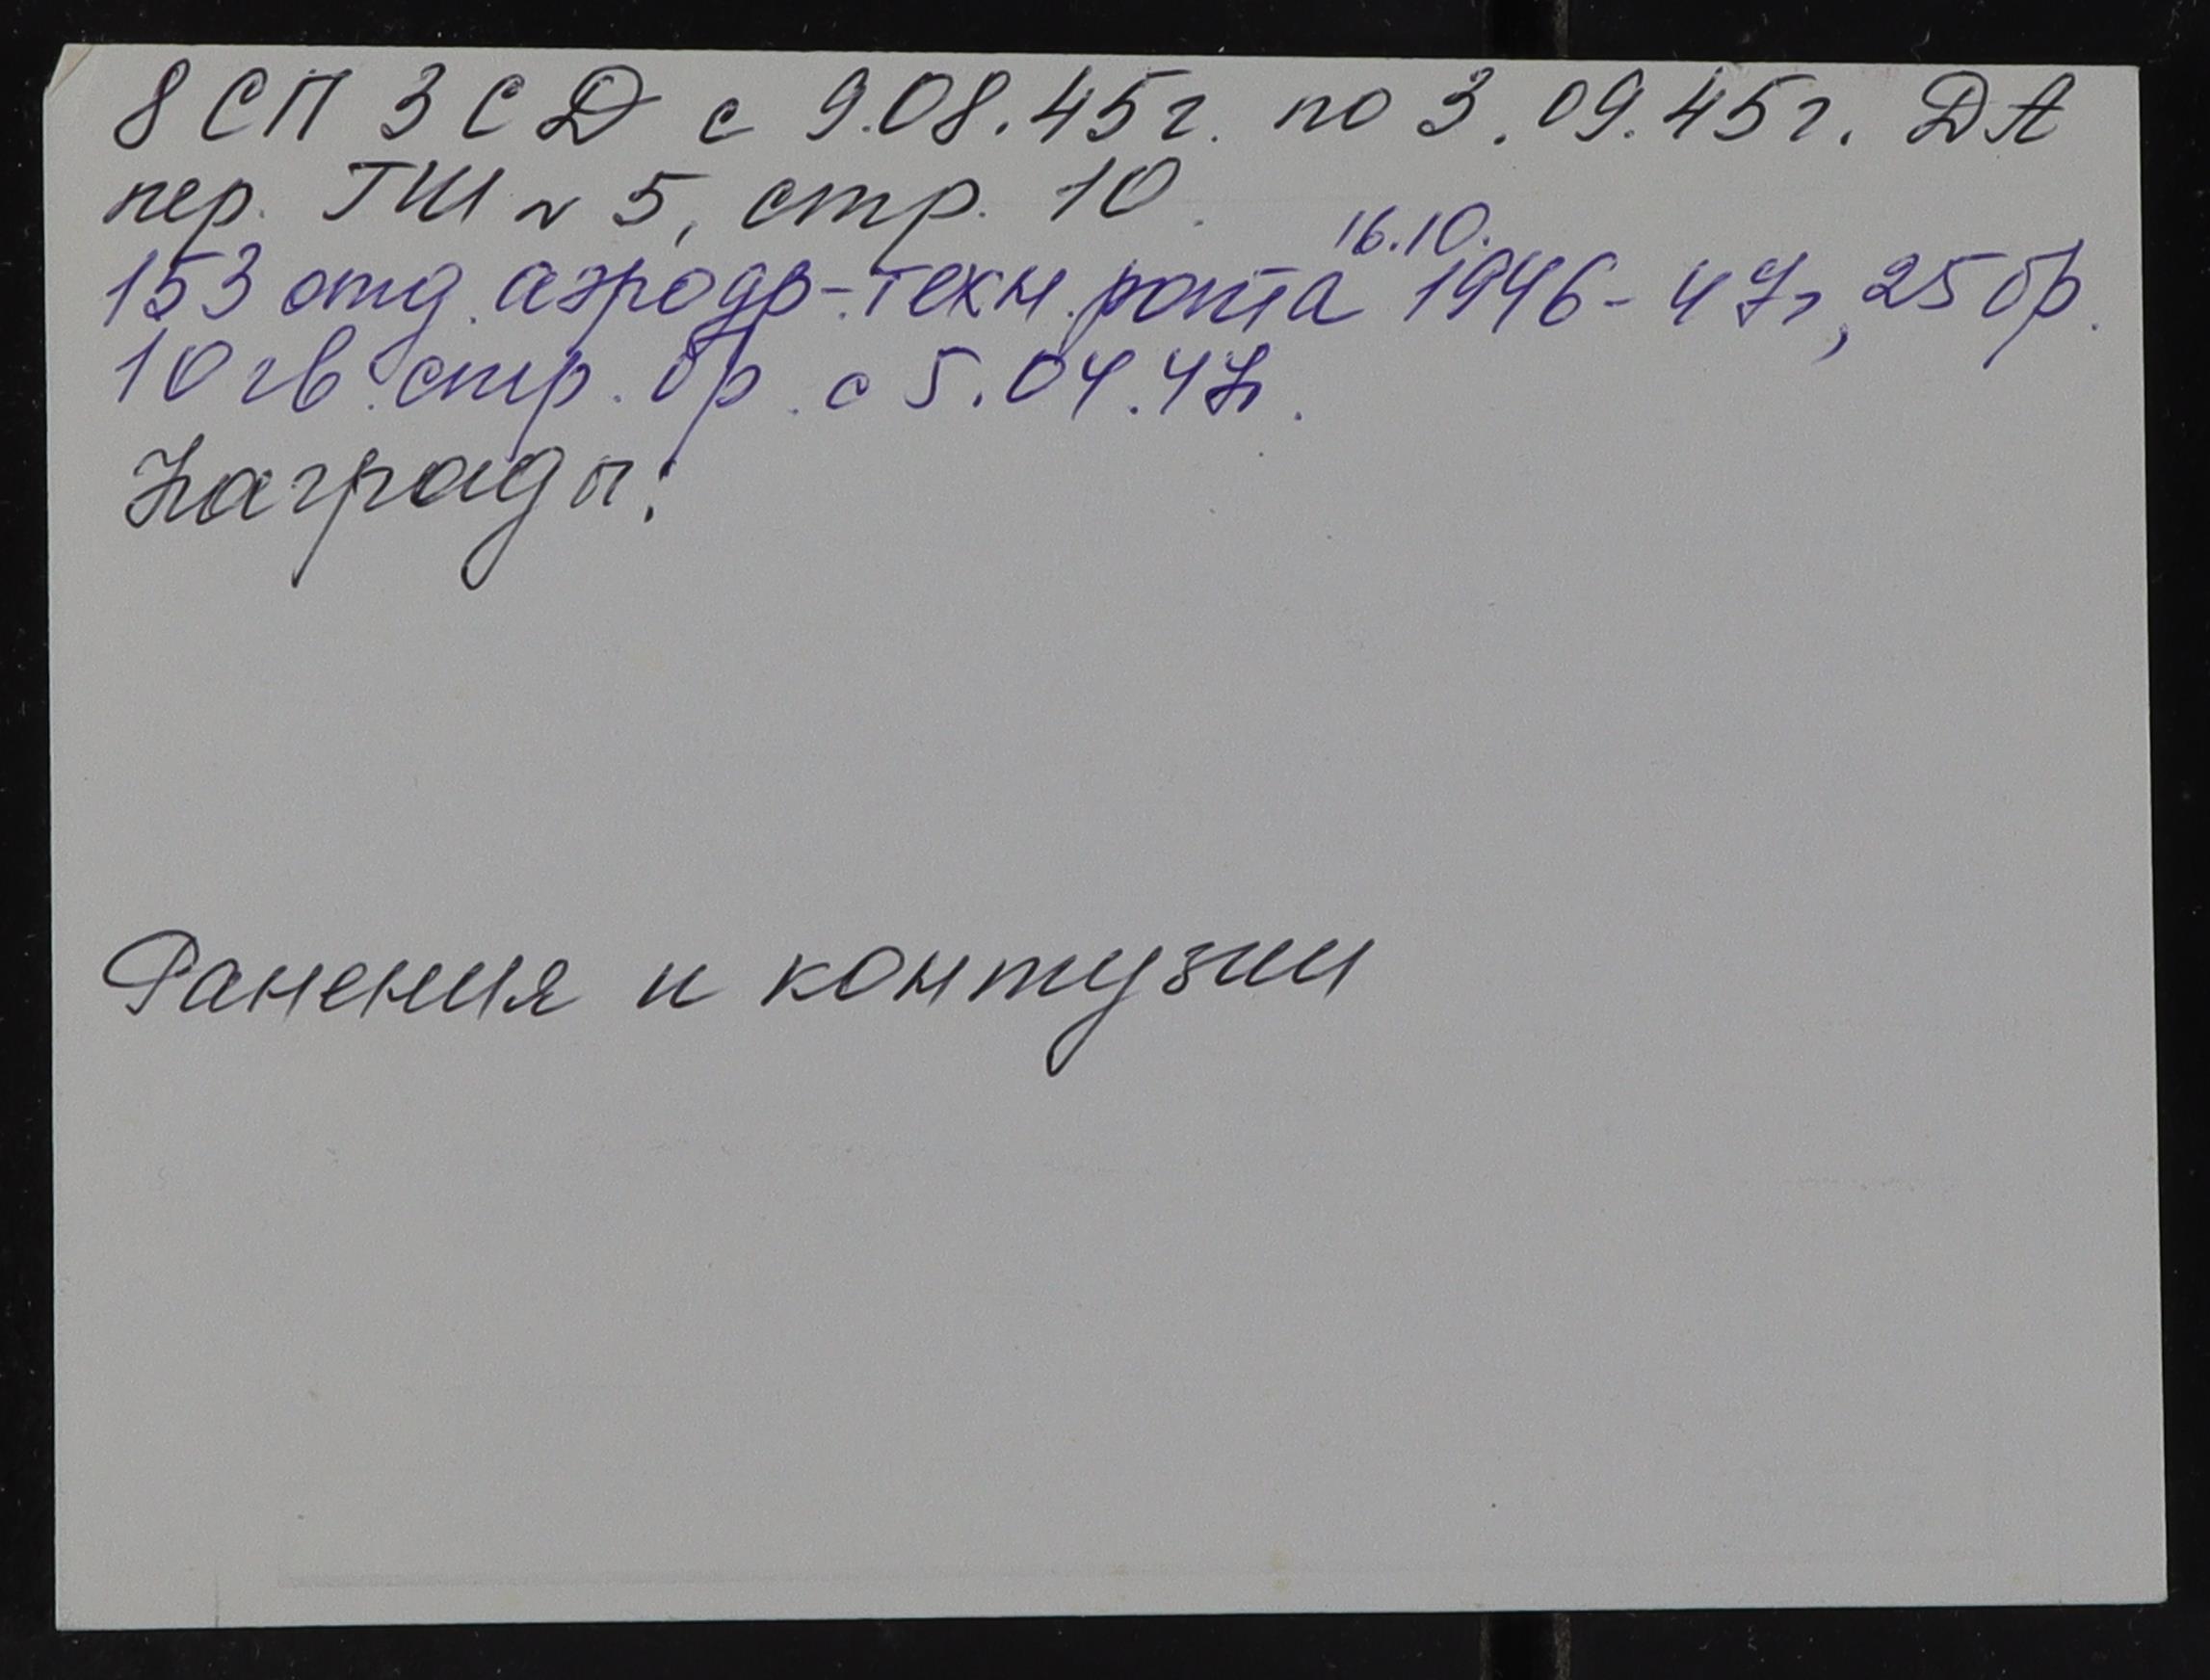 8 СП 3 СД с 9.08.45г. по 3.09.45г. ДА
пер. ГШ № 5, стр. 10.
16.10.
153 отд. аэродр-техн. рота 1946-47г, 25 бр.
10 гв. стр. бр. с 5.04.47г.
Награды:
Ранения и контузии